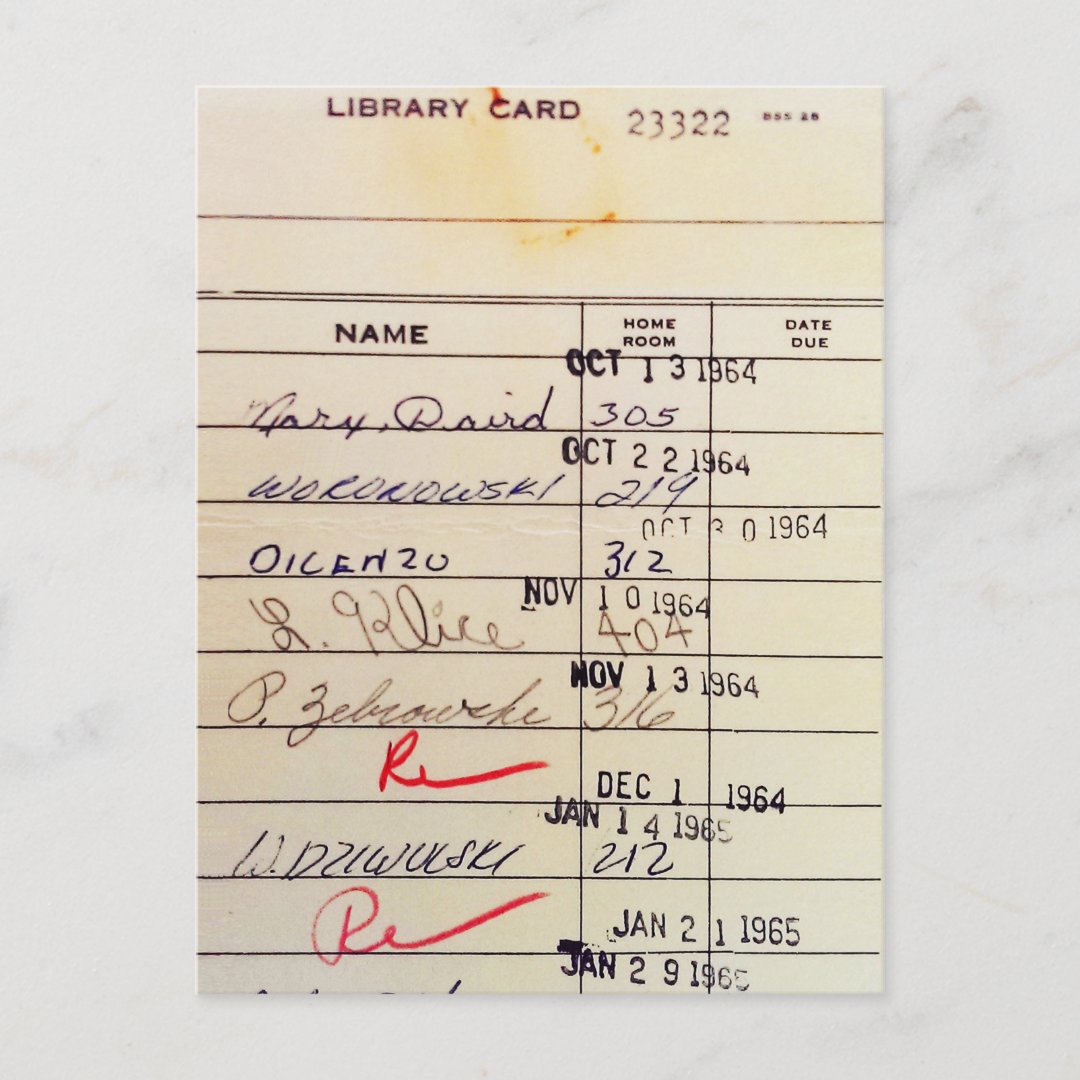 LIBRARY CARD 23322 BSS 28
NAME HOME ROOM DATE DUE
OCT 13 1964
Mary Daird 305
OCT 22 1964
WORONOWSKI 219
OCT 30 1964
DICENZO 312
NOV 10 1964
L. Kline 404
NOV 13 1964
P. Zebrowski 316
Re
DEC 1 1964
JAN 14 1965
W. DZIWULSKI 212
Re
JAN 21 1965
JAN 29 1965